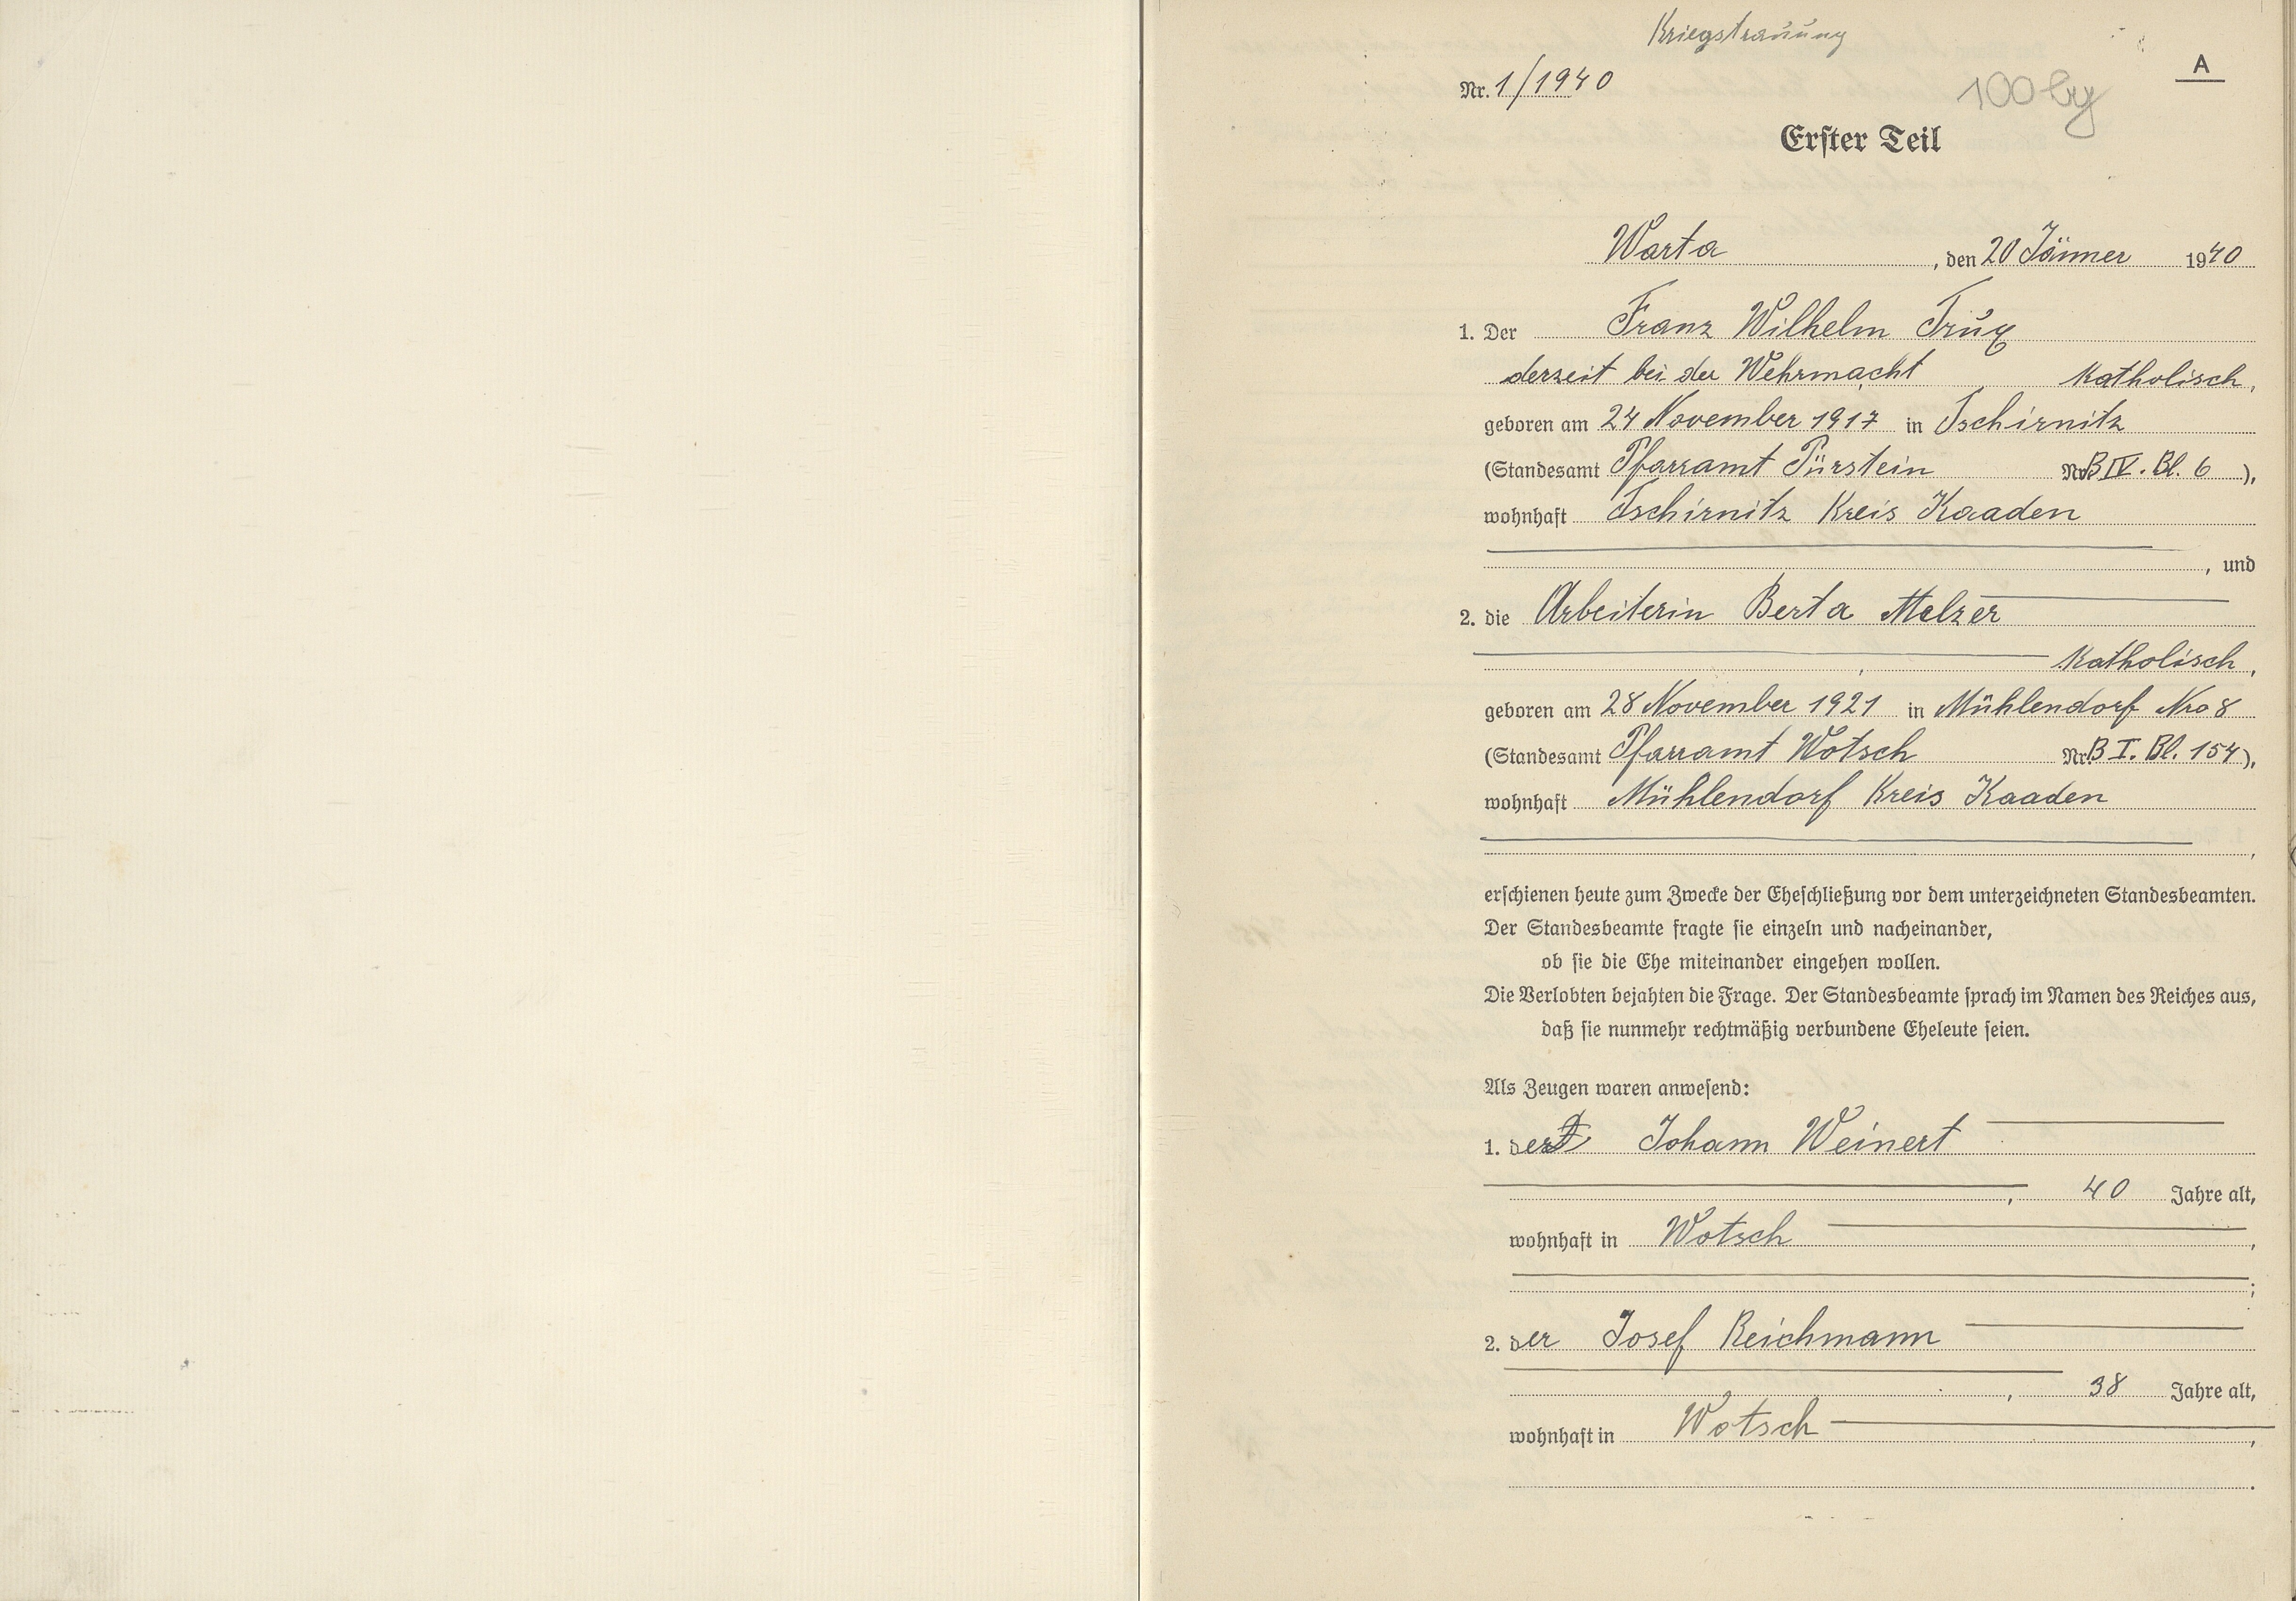 Kriegstrauung
A
Nr. 1/1940
Erster Teil
Warta, den 20 Jänner 1940
1. Der Franz Wilhelm
derzeit bei der Wehrmacht Katholisch,
geboren am 24 November 1917 in Tschirnitz
(Standesamt Pfarramt Pürstein Nr. B IV. Bl. 6),
wohnhaft Tschirnitz Kreis Kaaden
, und
2. die Arbeiterin Berta Melzer
Katholisch,
geboren am 28 November 1921 in Mühlendorf Nro 8
(Standesamt Pfarramt Wotsch Nr. B I. Bl. 154),
wohnhaft Mühlendorf Kreis Kaaden
,
erschienen heute zum Zwecke der Eheschließung vor dem unterzeichneten Standesbeamten.
Der Standesbeamte fragte sie einzeln und nacheinander,
ob sie die Ehe miteinander eingehen wollen.
Die Verlobten bejahten die Frage. Der Standesbeamte sprach im Namen des Reiches aus,
daß sie nunmehr rechtmäßig verbundene Eheleute seien.
Als Zeugen waren anwesend:
1. der Johann Weinert
, 40 Jahre alt,
wohnhaft in Wotsch,
;
2. der Josef Reichmann
, 38 Jahre alt,
wohnhaft in Wotsch,
.